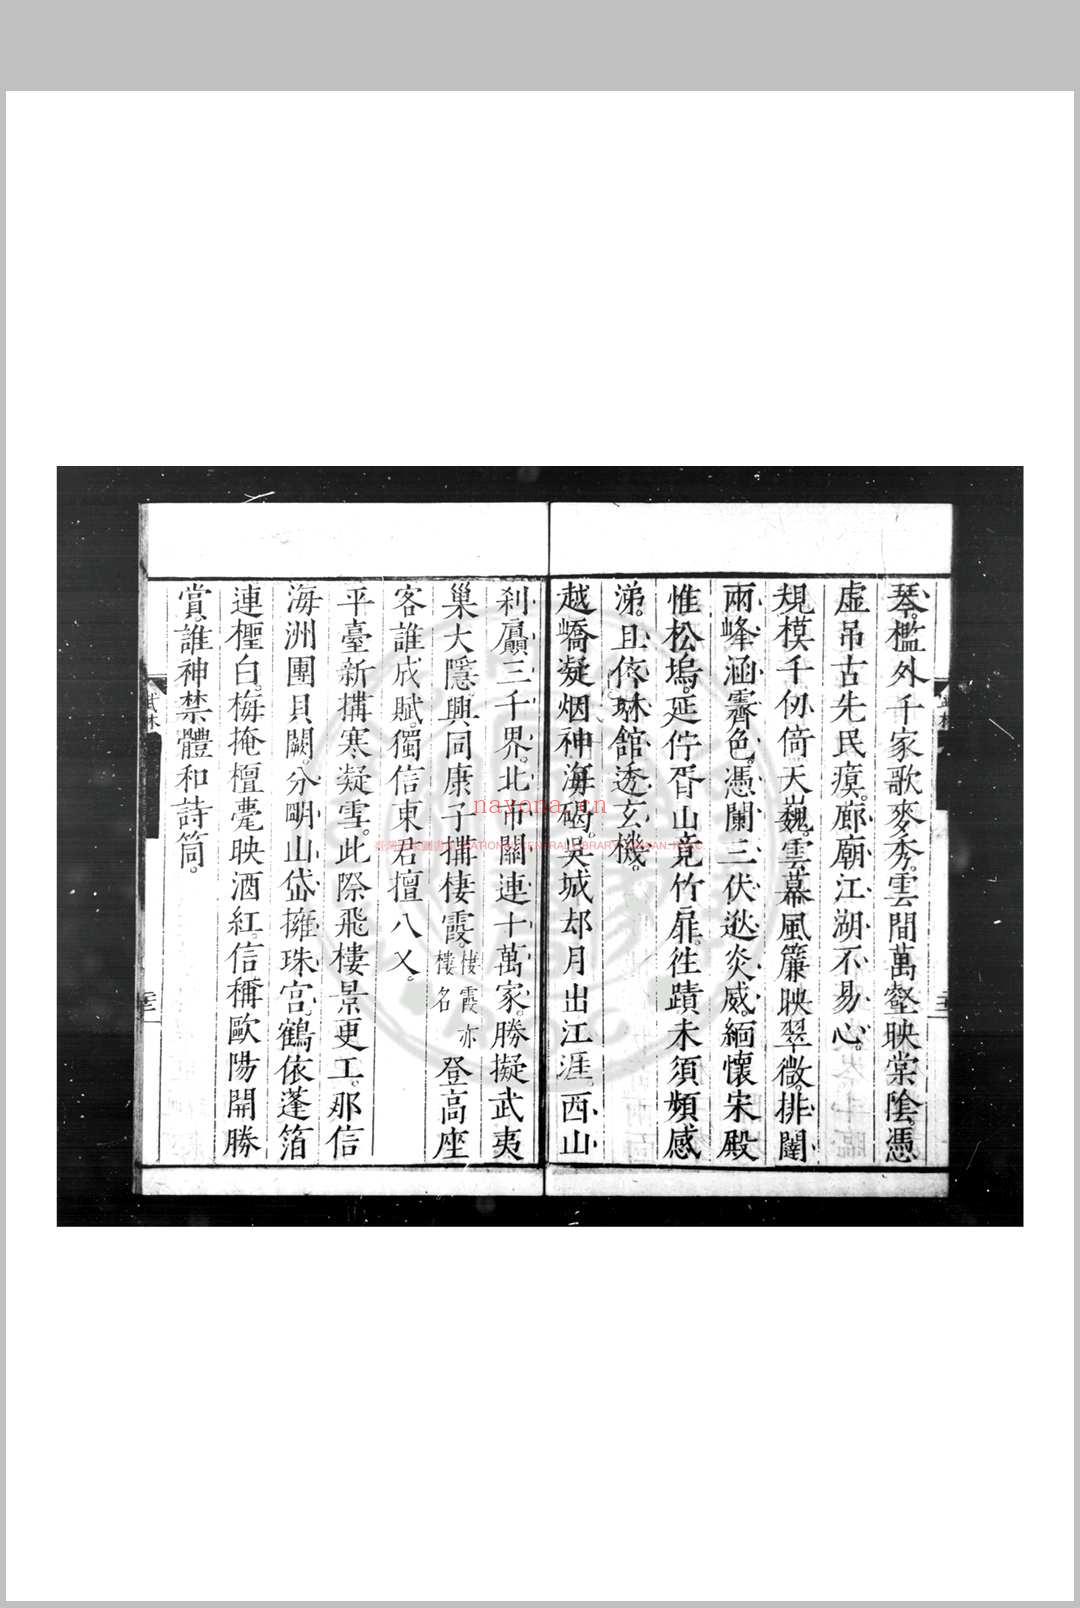 琴。檻外千家歌麥秀。雲間萬壑映棠陰。憑
虛吊古先民瘼。廊廟江湖不易心。
規模千仞倚天巍。雲幕風簾映翠微。排闥
兩峰涵霽色。憑闌三伏逃炎威。緬懷宋殿
惟松塢。延佇胥山竟竹扉。往蹟未須頻感
涕。且依琳館透玄機。
越嶠凝烟神海碣。吳城邨月出江涯。西山
剎贔三千界。北市闤連十萬家。勝擬武夷
巢大隱興同康子搆棲霞。棲霞亦樓名登高座
客誰成賦。獨信東君擅八乂。
平臺新搆寒凝雪。此際飛樓景更工。那信
海洲團貝闕。分明山岱擁珠宮。鶴依蓬箔
連檉白。梅掩檀麾映酒紅。信稱歐陽開勝
賞。誰神禁體和詩筒。
武林
nayona.cn